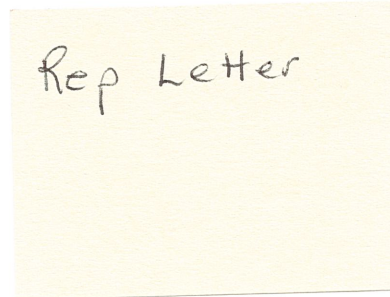 Rep Letter